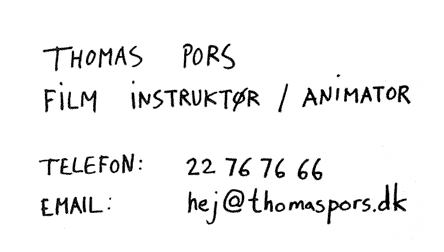 THOMAS PORS
FILM INSTRUKTØR / ANIMATOR
TELEFON: 22 76 76 66
EMAIL: hej@thomaspors.dk